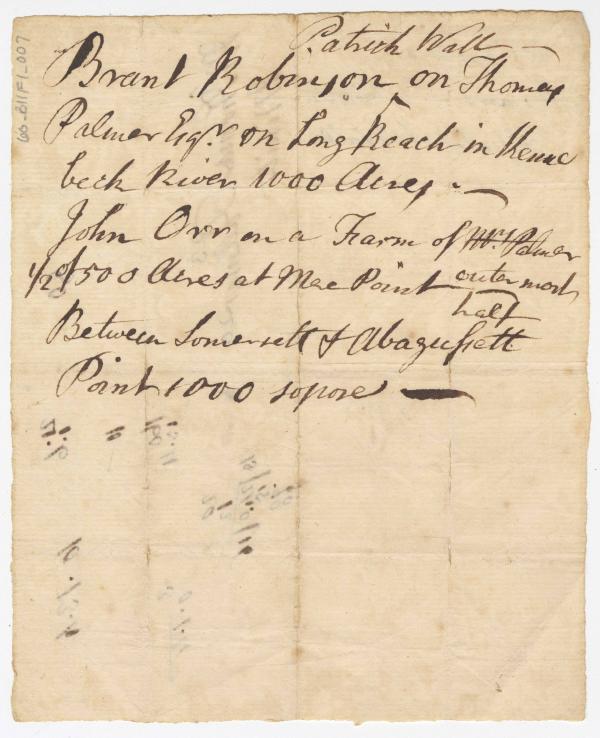 Patrick Wall —
Brant Robinson on Thomas
Palmer Esqr. on Long Reach in Kenne
beck River 1000 Acres. —
John Orr on a Farm of Mr. Palmer
1/2 of 500 Acres at Mare Point outer most
half
Between Somersett & Abagusett
Point 1000 sopose —
60_B11F1_007